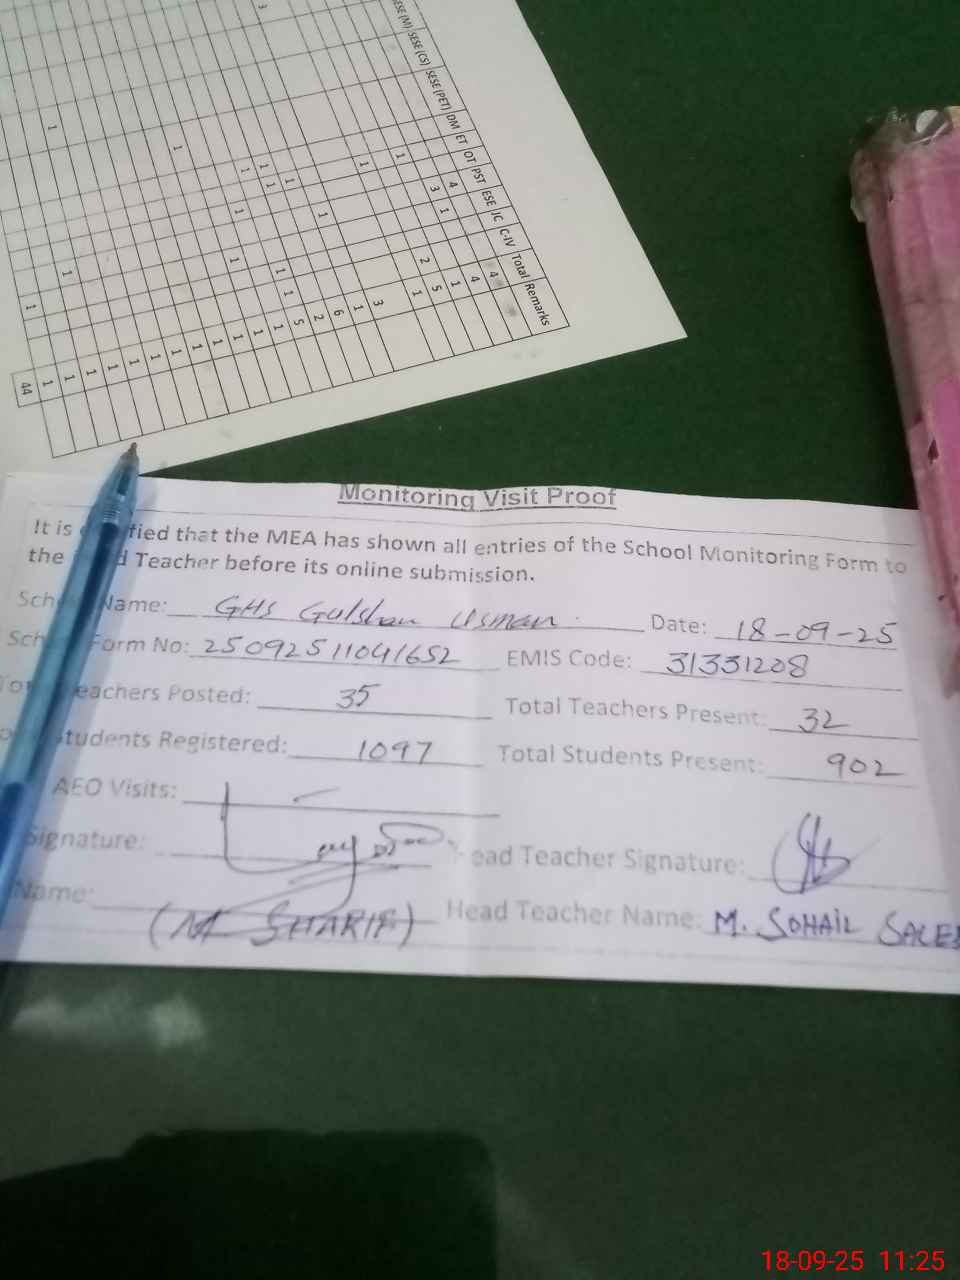 SESE (M) SESE (CS) SESE (PET) DM ET OT PST ESE JC C-IV Total Remarks
4
4 4
3 1 1
1 2 5
1 1
3
1
6
1 2
1 5
1 1 1 1
1 1
1 1
1
1
1
1
1 1
1
1 1
44
Monitoring Visit Proof
It is fied that the MEA has shown all entries of the School Monitoring Form to
the d Teacher before its online submission.
Sch Name: GHS Gulshan Usman Date: 18-09-25
Sch Form No: 250925 11041652 EMIS Code: 31331208
Tot eachers Posted: 35 Total Teachers Present: 32
tudents Registered: 1097 Total Students Present: 902
AEO Visits: —
Signature: ead Teacher Signature:
Name: (M SHARIF) Head Teacher Name: M. SOHAIL SALEE
18-09-25 11:25